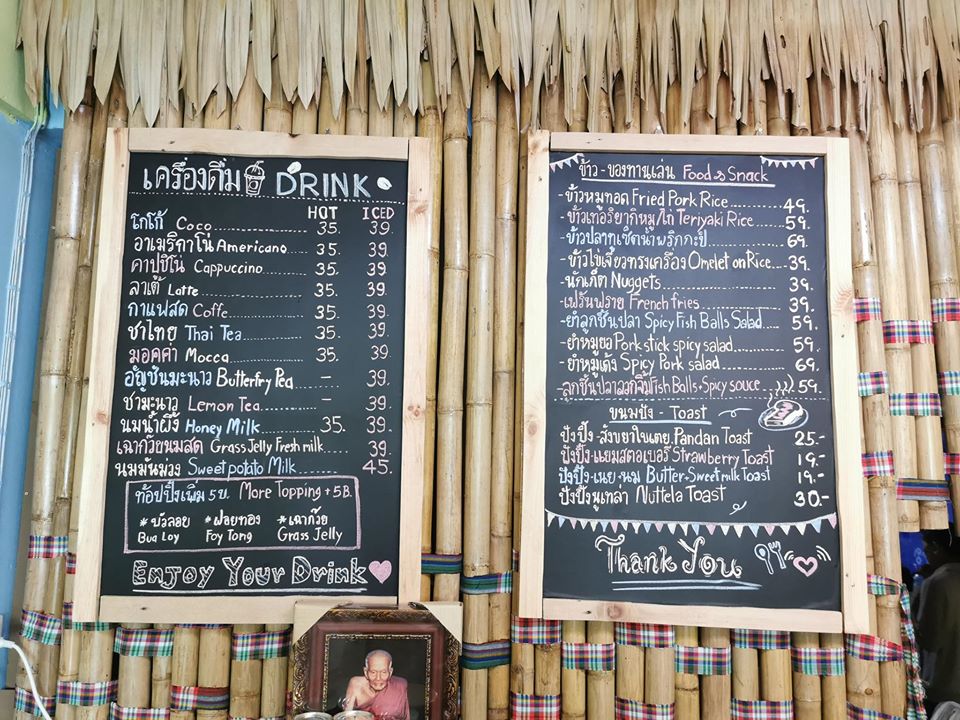 เครื่องดื่ม DRINK
HOT ICED
โกโก้ Coco 35. 39.
อาเมริกาโน่ Americano 35. 39.
คาปูชิโน่ Cappuccino 35. 39.
ลาเต้ Latte 35. 39.
กาแฟสด Coffe 35. 39.
ชาไทย Thai Tea 35. 39.
มอคค่า Mocca 35. 39.
อัญชันมะนาว Butterfry Pea - 39.
ชามะนาว Lemon Tea - 39.
นมน้ำผึ้ง Honey Milk 35. 39.
เฉาก๊วยนมสด Grass Jelly Fresh milk 39.
นมมันม่วง Sweet potato Milk 45.
ท๊อปปิ้งเพิ่ม 5 บ. More Topping + 5 B.
* บัวลอย * ฝอยทอง * เฉาก๊วย
Bua Loy Foy Tong Grass Jelly
Enjoy Your Drink
ข้าว - ของทานเล่น Food & Snack
- ข้าวหมูทอด Fried Pork Rice 49.
- ข้าวเทอริยากิหมู/ไก่ Teriyaki Rice 59.
- ข้าวปลาทูเซ็ตน้ำพริกกะปิ 69.
- ข้าวไข่เจียวทรงเครื่อง Omelet on Rice 39.
- นักเก็ต Nuggets 39.
- เฟร้นฟราย French fries 39.
- ยำลูกชิ้นปลา Spicy Fish Balls Salad 59.
- ยำหมูยอ Pork stick spicy salad 59.
- ยำหมูเด้ง Spicy Pork salad 69.
- ลูกชิ้นปลาลวกจิ้ม Fish Balls + Spicy souce 59.
ขนมปัง - Toast
ปังปิ้ง - สังขยาใบเตย Pandan Toast 25.-
ปังปิ้ง - แยมสตอเบอรี่ Strawberry Toast 19.-
ปังปิ้ง - เนย - นม Butter - Sweet milk Toast 19.-
ปังปิ้งนูเทล่า Nuttela Toast 30.-
Thank You